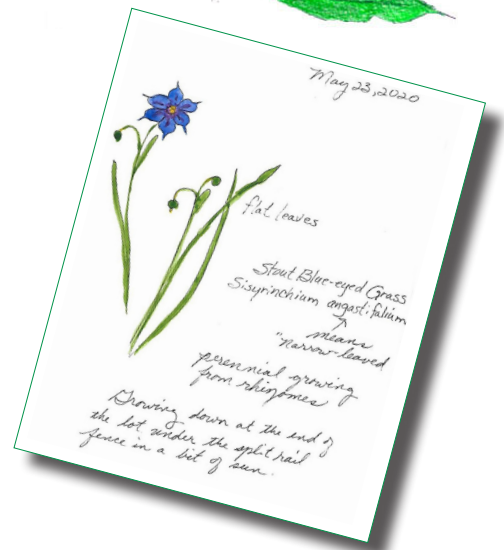 May 23, 2020
flat leaves
Stout Blue-eyed Grass
Sisyrinchium angastifalium
means
"narrow-leaved
perennial growing
from rhizomes
Growing down at the end of
the lot under the split rail
fence in a bit of sun.